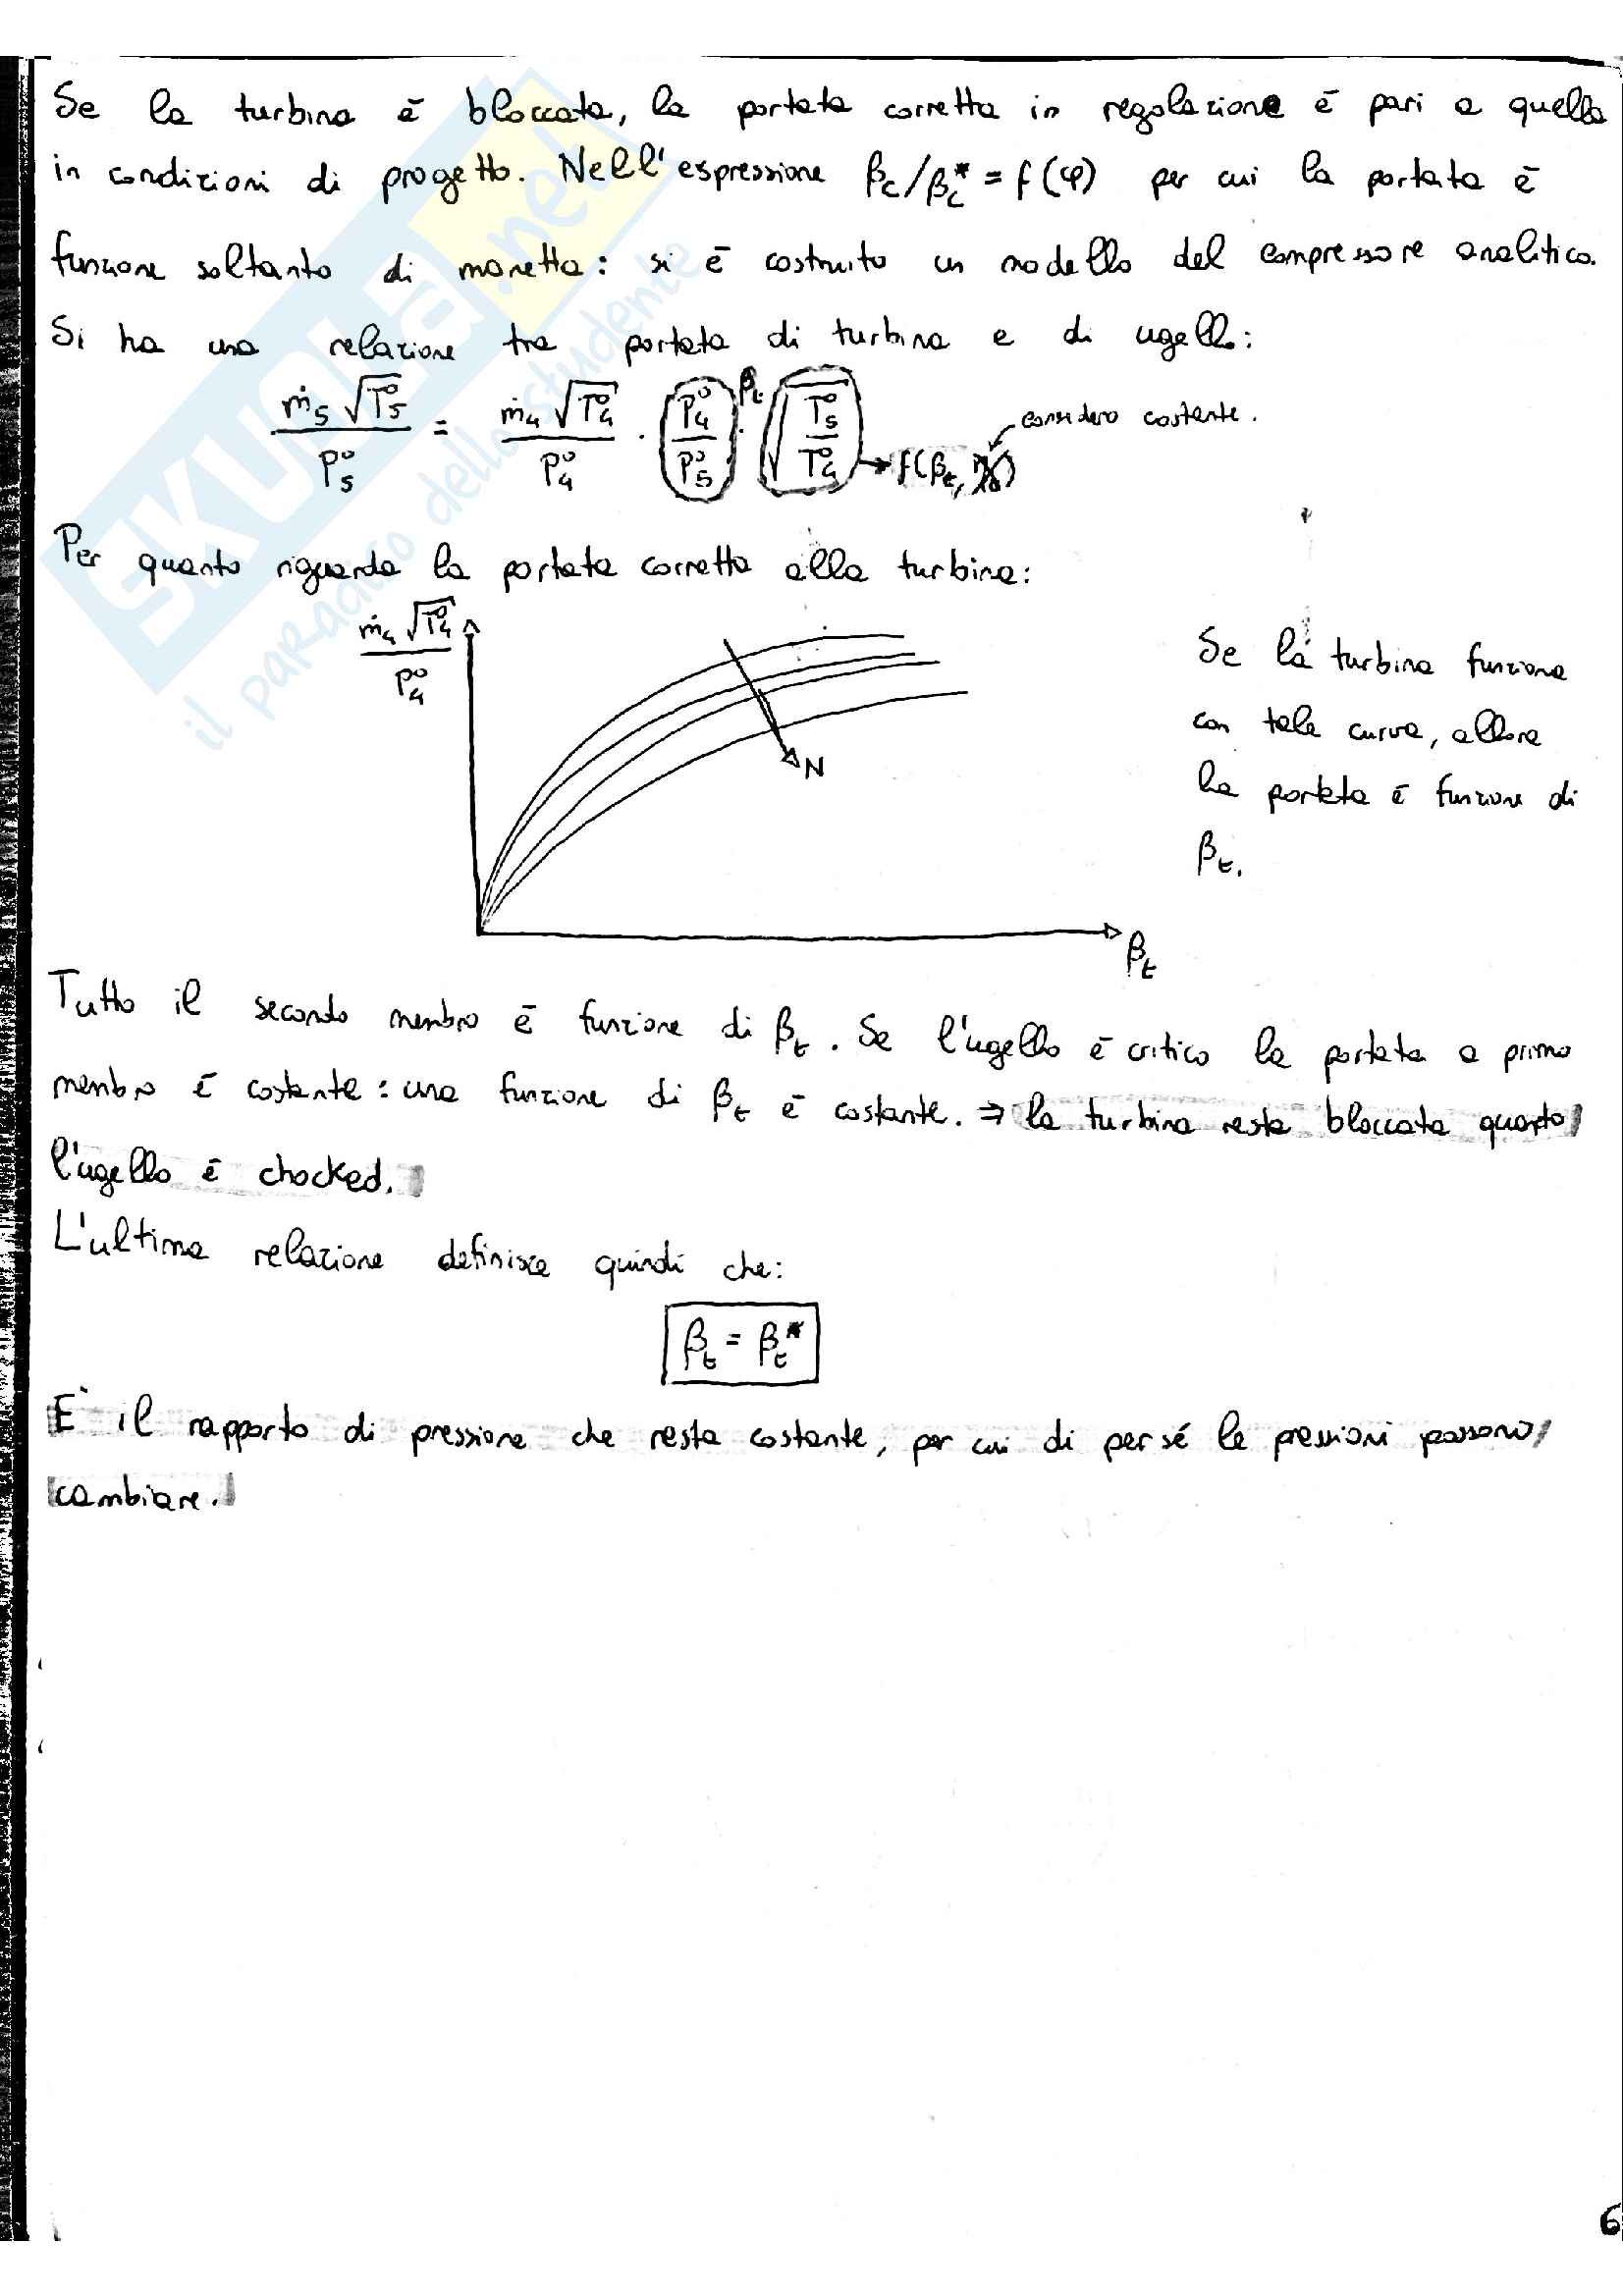 Se la turbina è bloccata, la portata corretta in regolazione è pari a quella
in condizioni di progetto. Nell'espressione βc/βc* = f(φ) per cui la portata è
funzione soltanto di manetta: si è costruito un modello del compressore analitico.
Si ha una relazione tra portata di turbina e di ugello:
ṁ₅ √T₅° / P₅° = ṁ₄ √T₄° / P₄° · P₄° / P₅° · √(T₅° / T₄°) → f(βt, η)
βt
considero costante.
Per quanto riguarda la portata corretta alla turbina:
ṁ₄ √T₄° / P₄°
N
βt
Se la turbina funziona
con tale curva, allora
la portata è funzione di
βt.
Tutto il secondo membro è funzione di βt. Se l'ugello è critico la portata a primo
membro è costante: una funzione di βt è costante. ⇒ la turbina resta bloccata quanto
l'ugello è chocked.
L'ultima relazione definisce quindi che:
βt = βt*
E' il rapporto di pressione che resta costante, per cui di per sé le pressioni possono
cambiare.
6
SKUOLA.net
il paradiso dello studente